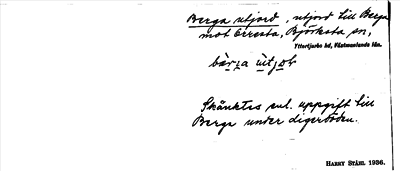 Berga utjord, utjord till Berga
mot Orresta, Björksta sn,
Yttertjurbo hd, Västmanlands län.
bàrⱼa ùtjoḷ
Skänktes enl. uppgift till
Berga under digerdöden.
HARRY STÅHL 1936.